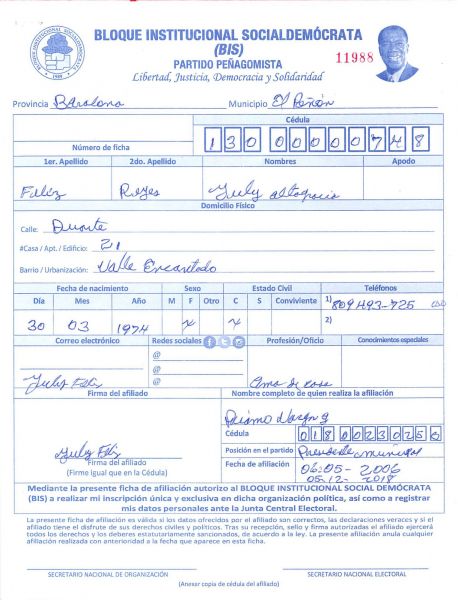 BLOQUE INSTITUCIONAL SOCIALDEMÓCRATA
(BIS)
PARTIDO PEÑAGOMISTA
Libertad, Justicia, Democracia y Solidaridad
11988
Provincia Barahona Municipio El Peñón
Cédula
Número de ficha 130 0000748
1er. Apellido 2do. Apellido Nombres Apodo
Feliz Reyes July altagracia
Domicilio Físico
Calle: Duarte
#Casa / Apt. / Edificio: 21
Barrio / Urbanización: Valle Encantado
Fecha de nacimiento Sexo Estado Civil Teléfonos
Día Mes Año M F Otro C S Conviviente 1) 809 493-725
30 03 1974 x x 2)
Correo electrónico Redes sociales Profesión/Oficio Conocimientos especiales
@
@
@
July Feliz Ama de casa
Firma del afiliado Nombre completo de quien realiza la afiliación
Cédula
018 0023025
July Feliz Posición en el partido Presidente municipal
Firma del afiliado
(Firme igual que en la Cédula)
Fecha de afiliación 06-05-2006
05-12-2018
Mediante la presente ficha de afiliación autorizo al BLOQUE INSTITUCIONAL SOCIAL DEMÓCRATA
(BIS) a realizar mi inscripción única y exclusiva en dicha organización política, así como a registrar
mis datos personales ante la Junta Central Electoral.
La presente ficha de afiliación es válida si los datos ofrecidos por el afiliado son correctos, las declaraciones veraces y si el
afiliado tiene el disfrute de sus derechos civiles y políticos. Tras su recepción, sello y firma autorizadas el afiliado ejercerá
todos los derechos y los deberes estatutariamente sancionados, de acuerdo a la ley. La presente afiliación anula cualquier
afiliación realizada con anterioridad a la fecha que aparece en esta ficha.
SECRETARIO NACIONAL DE ORGANIZACIÓN SECRETARIO NACIONAL ELECTORAL
(Anexar copia de cédula del afiliado)